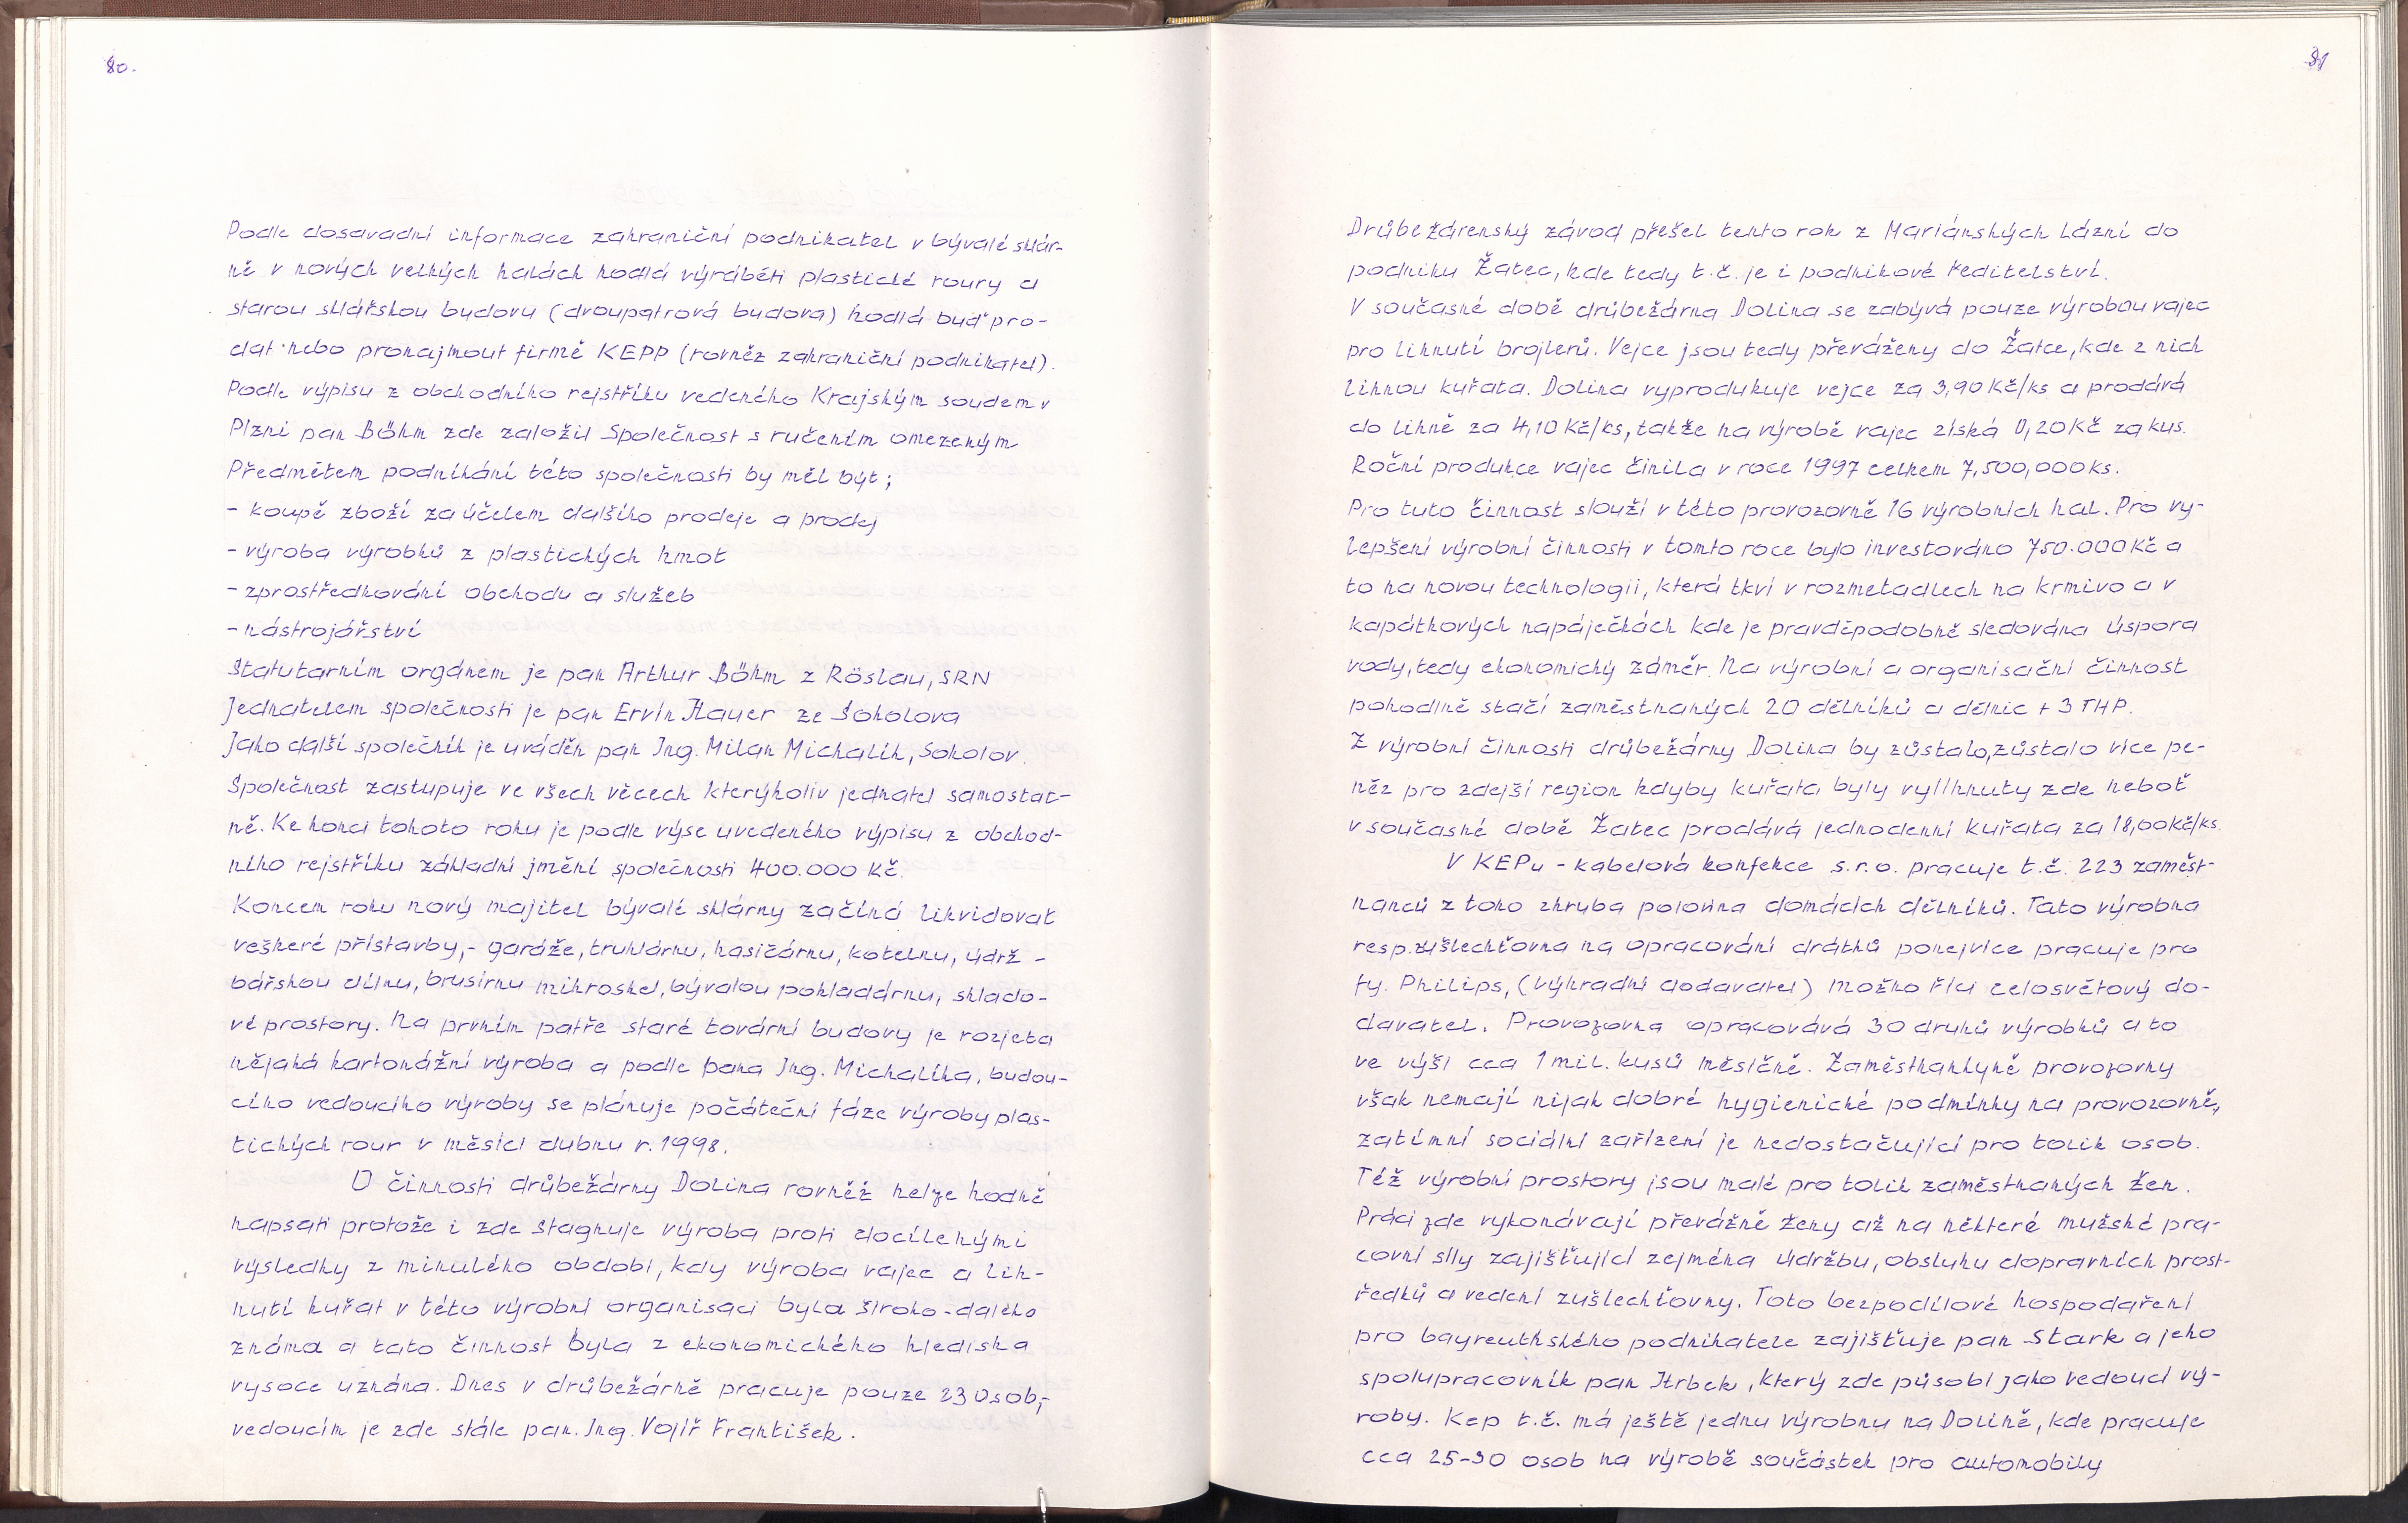 80.
Podle dosavadní informace zahraniční podnikatel v bývalé sklár-
ně v nových velkých halách hodlá výráběti plastické roury a
starou sklářskou budovu (dvoupatrová budova) hodlá buď pro-
dat nebo pronajmout firmě KEPP (rovněz zahraniční podnikatel).
Podle výpisu z obchodního rejstříku vedeného Krajským soudem v
Plzni pan Böhm zde založil Společnost s ručením omezeným
Předmětem podnikání této společnosti by měl být;
- koupě zboží za účelem dalšího prodeje a prodej
- výroba výrobků z plastických hmot
- zprostředkování obchodu a služeb
- nástrojářství
Statutarním orgánem je pan Arthur Böhm z Röslau, SRN
Jednatelem společnosti je pan Ervín Hauer ze Sokolova
Jako další společník je uváděn pan Ing. Milan Michalík, Sokolov.
Společnost zastupuje ve všech věcech kterýkoliv jednatel samostat-
ně. Ke konci tohoto roku je podle výse uvedeného výpisu z obchod-
ního rejstříku základní jmění společnosti 400.000 Kč.
Koncem roku nový majitel bývalé sklárny začíná likvidovat
veškeré přístavby,- garáže, truhlárnu, hasičárnu, kotelnu, údrž -
bářskou dílnu, brusírnu mikroskel, bývalou pokladdrnu, sklado-
vé prostory. Na prvním patře staré tovární budovy je rozjeta
nějaká kartonážní výroba a podle pana Ing. Michalíka, budou-
cího vedoucího výroby se plánuje počáteční fáze výroby plas-
tických rour v měsíci dubnu r. 1998.
O činnosti drůbežárny Dolina rovněž nelze hodně
napsati protože i zde stagnuje výroba proti docílenými
výsledky z minulého období, kdy výroba vajec a líh-
nutí kuřat v této výrobní organisaci byla široko-daleko
známa a tato činnost byla z ekonomického hlediska
vysoce uznána. Dnes v drůbežárně pracuje pouze 23 osob,-
vedoucím je zde stále pan. Ing. Vojíř František.
81
Drůbežárenský závod přešel tento rok z Mariánských Lázní do
podniku Žatec, kde tedy t.č. je i podnikové ředitelství.
V současné době drůbežárna Dolina se zabývá pouze výrobou vajec
pro líhnutí brojlerů. Vejce jsou tedy převáženy do Žatce, kde z nich
líhnou kuřata. Dolina vyprodukuje vejce za 3,90 Kč/ks a prodává
do líhně za 4,10 Kč/ks, takže na výrobě vajec získá 0,20 Kč za kus.
Roční produkce vajec činila v roce 1997 celkem 7,500,000 ks.
Pro tuto činnost slouží v této provozovně 16 výrobních hal. Pro vy-
lepšení výrobní činnosti v tomto roce bylo investováno 750.000 Kč a
to na novou technologii, která tkví v rozmetadlech na krmivo a v
kapátkových napáječkách kde je pravděpodobně sledována úspora
vody, tedy ekonomický záměr. Na výrobní a organisační činnost
pohodlně stačí zaměstnaných 20 dělníků a dělnic + 3 THP.
Z výrobní činnosti drůbežárny Dolina by zůstalo, zůstalo více pe-
něz pro zdejší region kdyby kuřata byly vylíhnuty zde neboť
v současné době Žatec prodává jednodenní kuřata za 18,00 kč/ks.
V KEPu - kabelová konfekce s.r.o. pracuje t.č. 223 zaměst-
nanců z toho zhruba polovina domácích dělníků. Tato výrobna
resp. zušlechťovna na opracování drátků ponejvíce pracuje pro
fy. Philips, (výhradní dodavatel) možno říci celosvětový do-
davatel. Provozovna opracovává 30 druhů výrobků a to
ve výši cca 1 mil. kusů měsíčně. Zaměstnankyně provozovny
však nemají nijak dobré hygienické podmínky na provozovně,
zatímní sociální zařízení je nedostačující pro tolik osob.
Též výrobní prostory jsou malé pro tolik zaměstnaných žen.
Práci zde vykonávají převážně ženy až na některé mužské pra-
covní síly zajišťující zejména údržbu, obsluhu dopravních prost-
ředků a vedení zušlechťovny. Toto bezpodílové hospodaření
pro bayreuthského podnikatele zajišťuje pan Stark a jeho
spolupracovník pan Hrbek, který zde působí jako vedoucí vý-
roby. Kep t.č. má ještě jednu výrobnu na Dolině, kde pracuje
cca 25-30 osob na výrobě součástek pro automobily